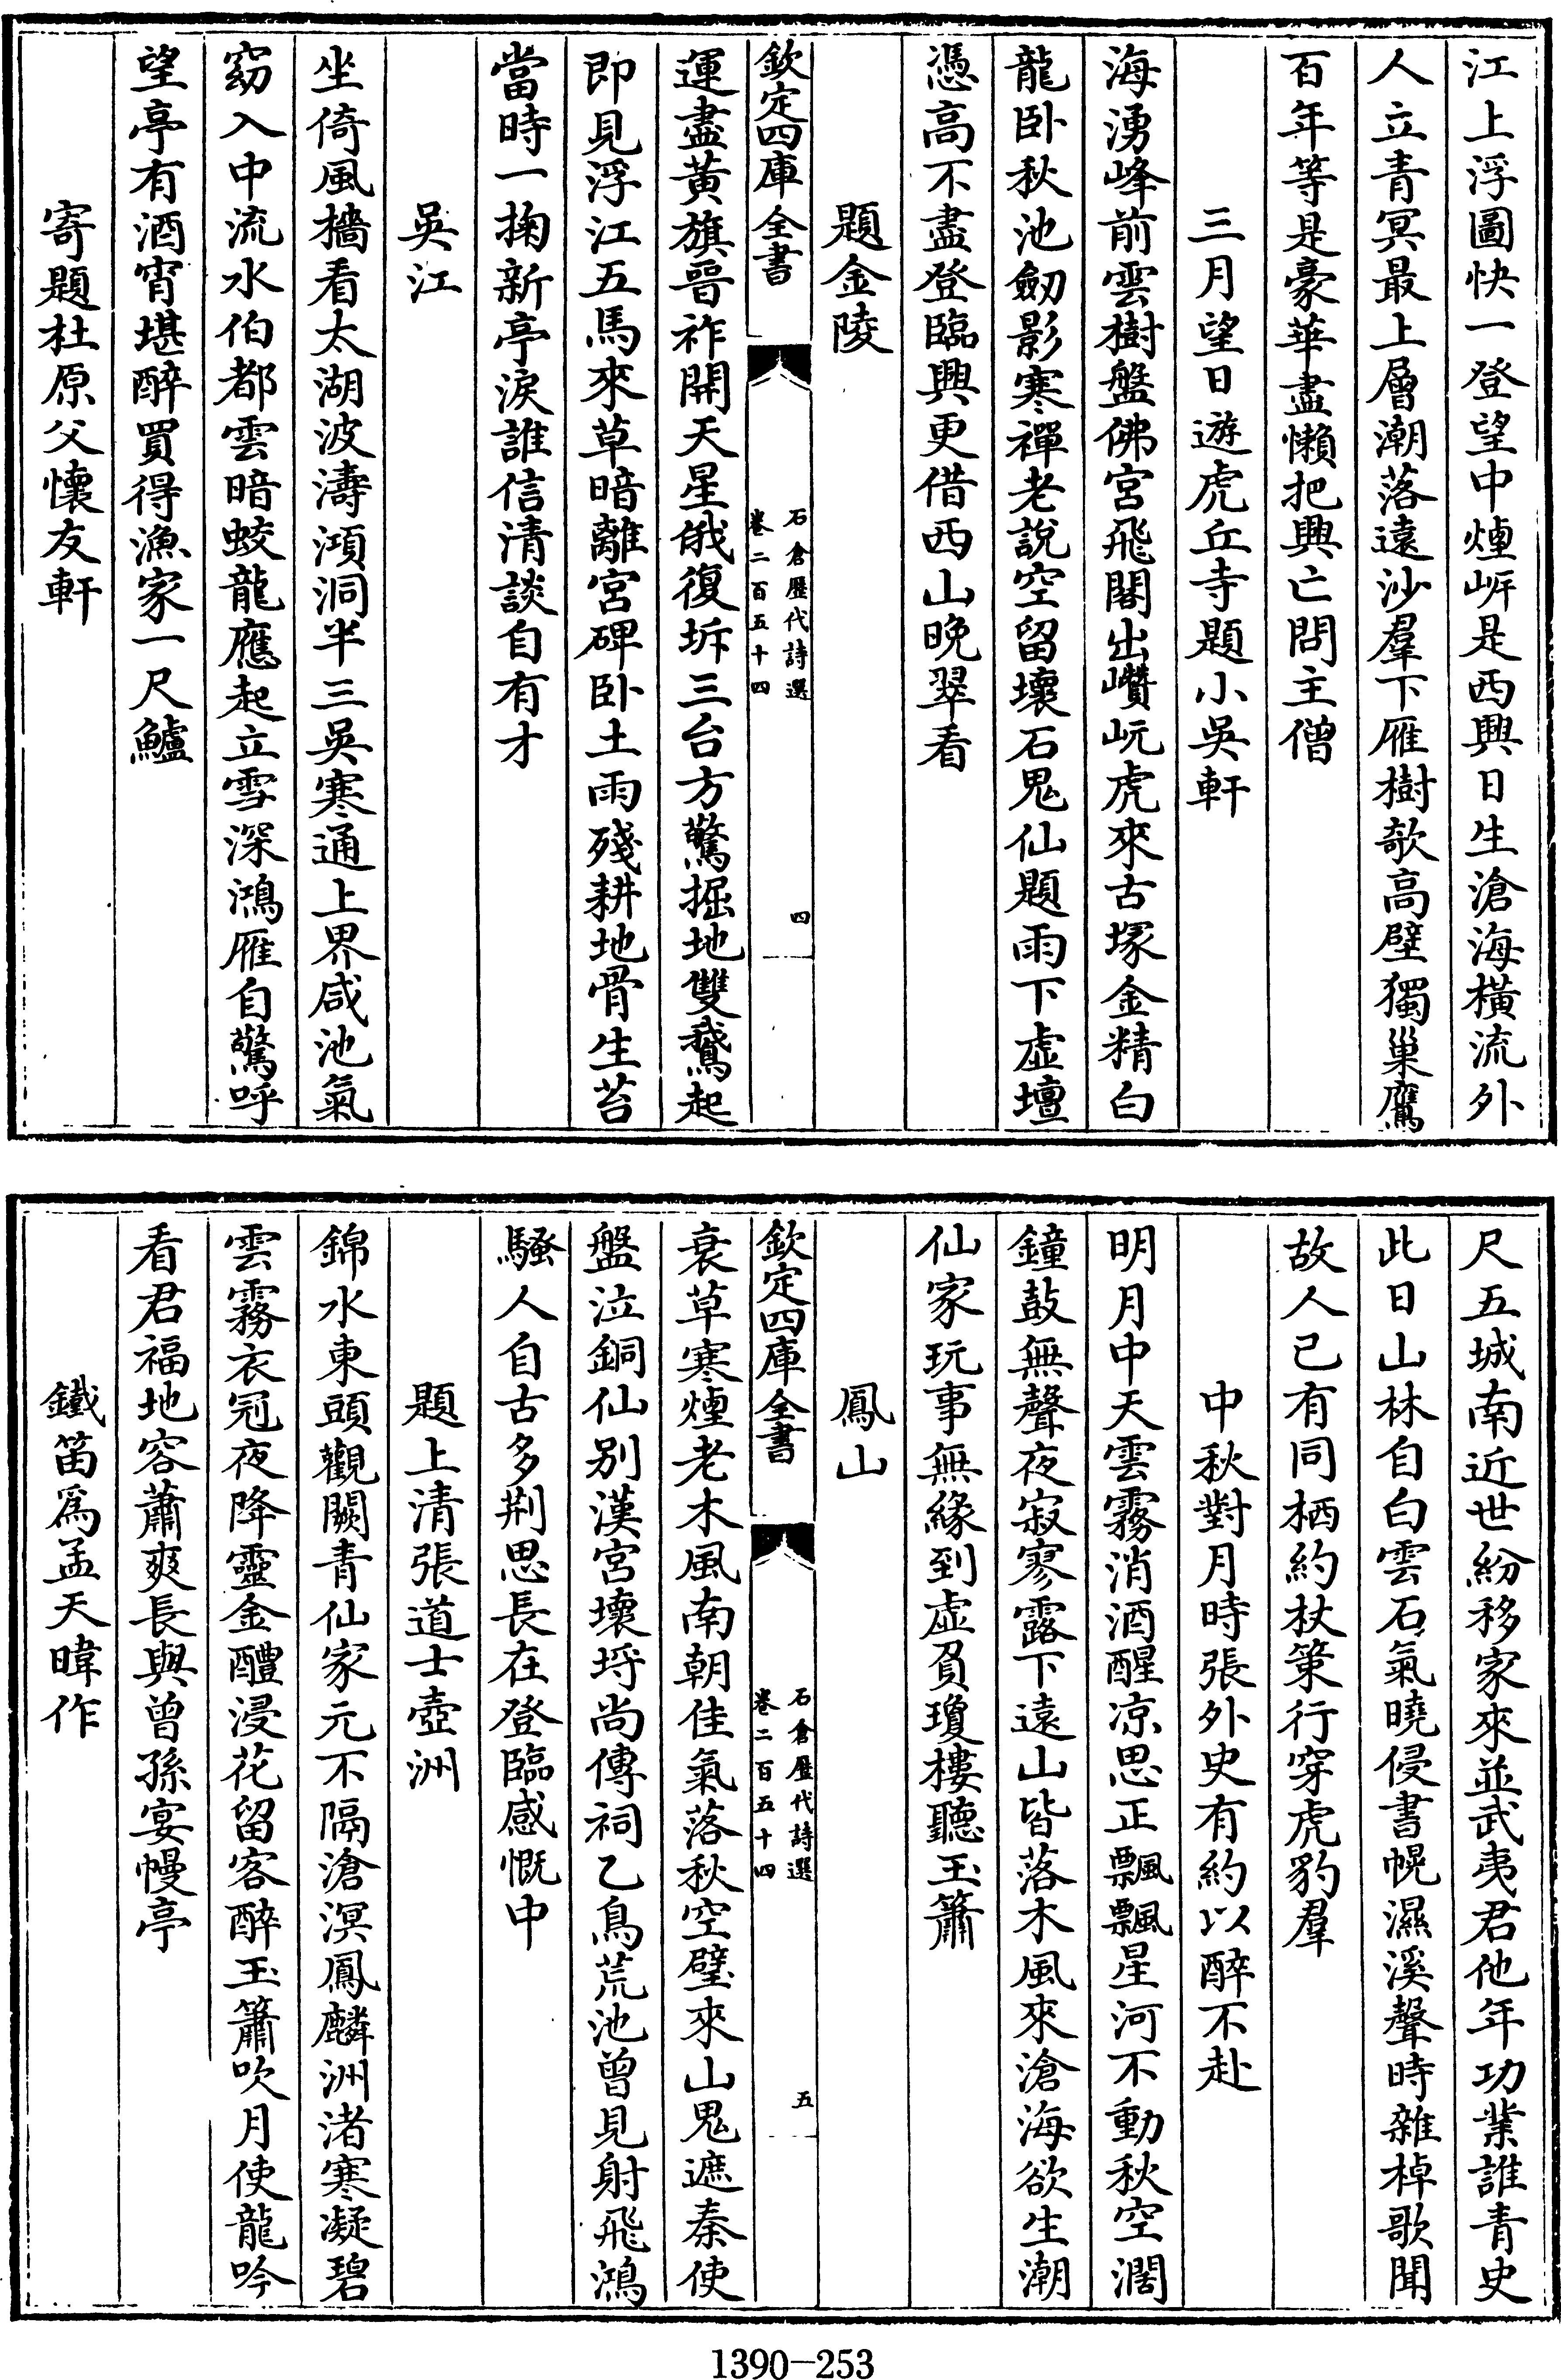 江上浮圖快一登望中煙㟁是西興日生滄海横流外
人立青冥最上層潮落遠沙羣下雁樹欹高壁獨巢鷹
百年等是豪華盡懶把興亡問主僧
三月望日遊虎丘寺題小吳軒
海湧峰前雲樹盤佛宮飛閣出巑岏虎來古塚金精白
龍卧秋池劒影寒禪老說空留壞石鬼仙題雨下虛壇
憑高不盡登臨興更借西山晚翠看
題金陵
欽定四庫全書
石倉歷代詩選
卷二百五十四
四
運盡黃旗晉祚開天星俄復坼三台方驚掘地雙鵞起
即見浮江五馬來草暗離宮碑卧土雨殘耕地骨生苔
當時一掬新亭淚誰信清談自有才
吳江
坐倚風檣看太湖波濤澒洞半三吳寒通上界咸池氣
窈入中流水伯都雲暗蛟龍應起立雪深鴻雁自驚呼
望亭有酒宵堪醉買得漁家一尺鱸
寄題杜原父懷友軒
尺五城南近世紛移家來並武夷君他年功業誰青史
此日山林自白雲石氣曉侵書幌濕溪聲時雜棹歌聞
故人已有同栖約杖策行穿虎豹羣
中秋對月時張外史有約以醉不赴
明月中天雲霧消酒醒凉思正飄飄星河不動秋空濶
鐘鼓無聲夜寂寥露下遠山皆落木風來滄海欲生潮
仙家玩事無緣到虛負瓊樓聽玉簫
鳳山
欽定四庫全書
石倉歷代詩選
卷二百五十四
五
衰草寒煙老木風南朝佳氣落秋空璧來山鬼遮秦使
盤泣銅仙别漢宮壞埒尚傳祠乙鳥荒池曾見射飛鴻
騷人自古多荆思長在登臨感慨中
題上清張道士壺洲
錦水東頭觀闕青仙家元不隔滄溟鳳麟洲渚寒凝碧
雲霧衣冠夜降靈金醴浸花留客醉玉簫吹月使龍吟
看君福地容蕭爽長與曾孫宴幔亭
鐵笛爲孟天暐作
1390－253